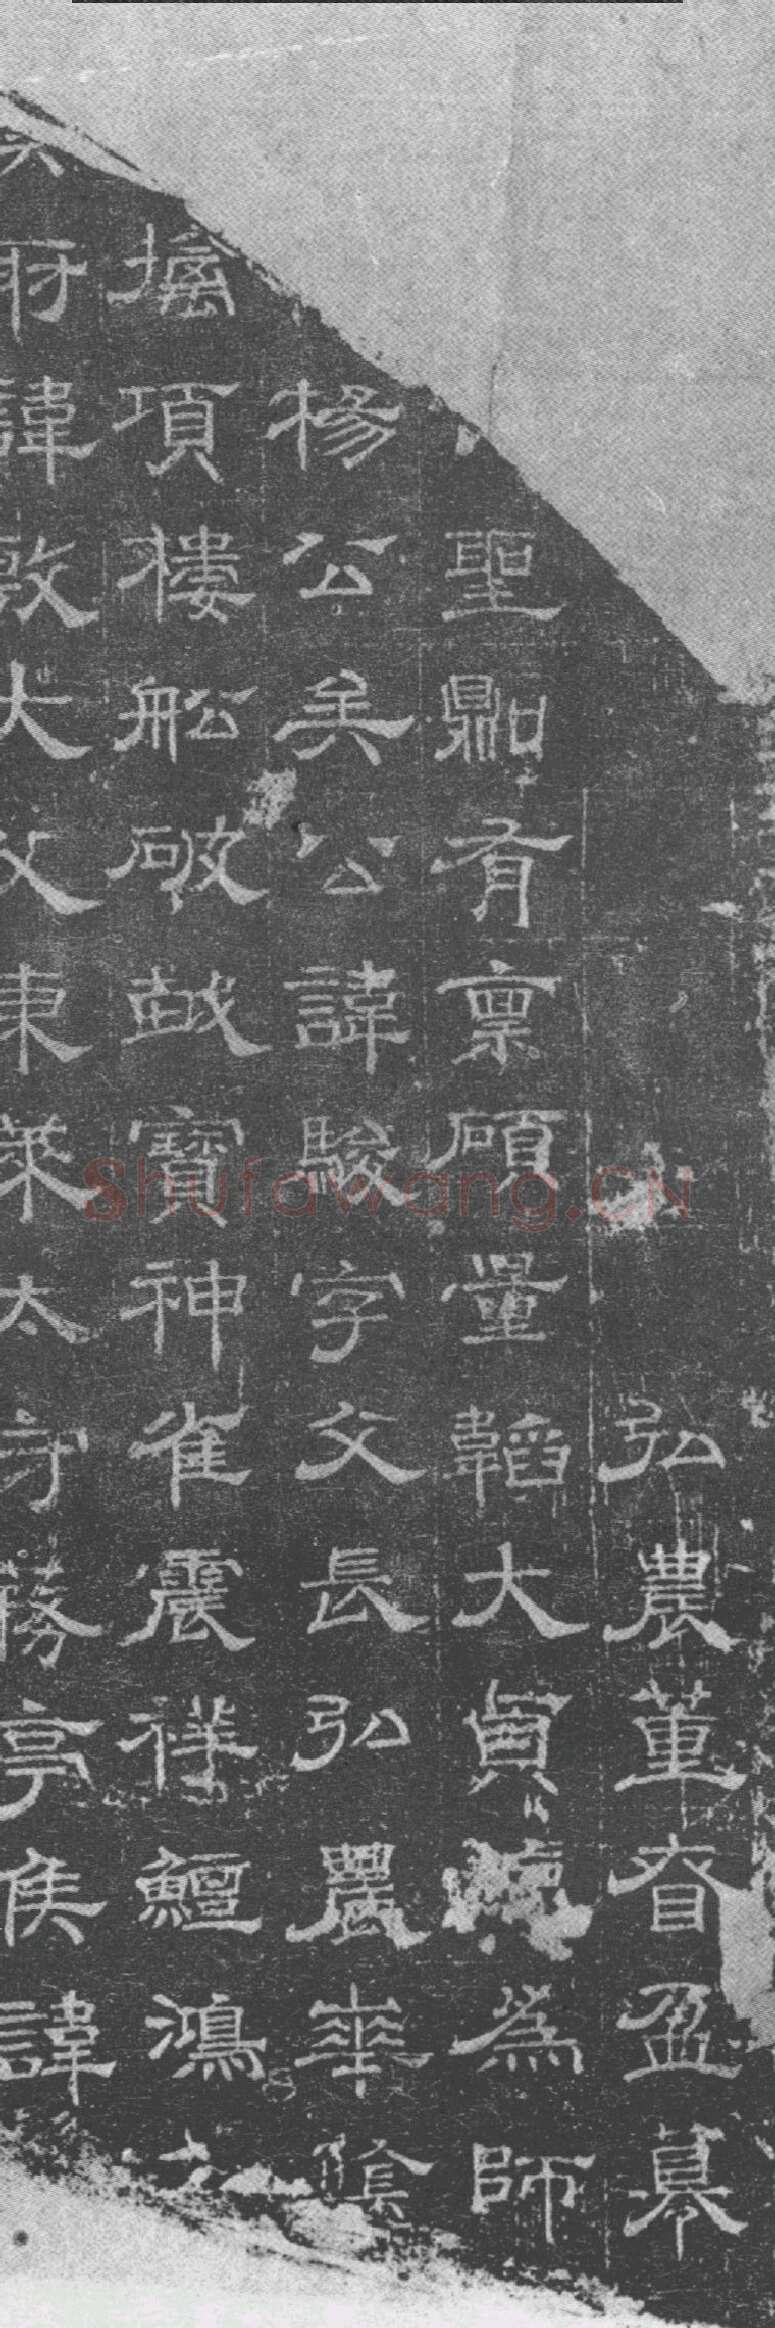 弘農董眘盈
聖有稟碩量韜大貞為師
楊公矣公諱駿字父長弘農華陰
擒項樓船破越寶神雀震祥鱣鴻
諱敦大父東萊太守蓩亭侯諱
Shufawang.CN